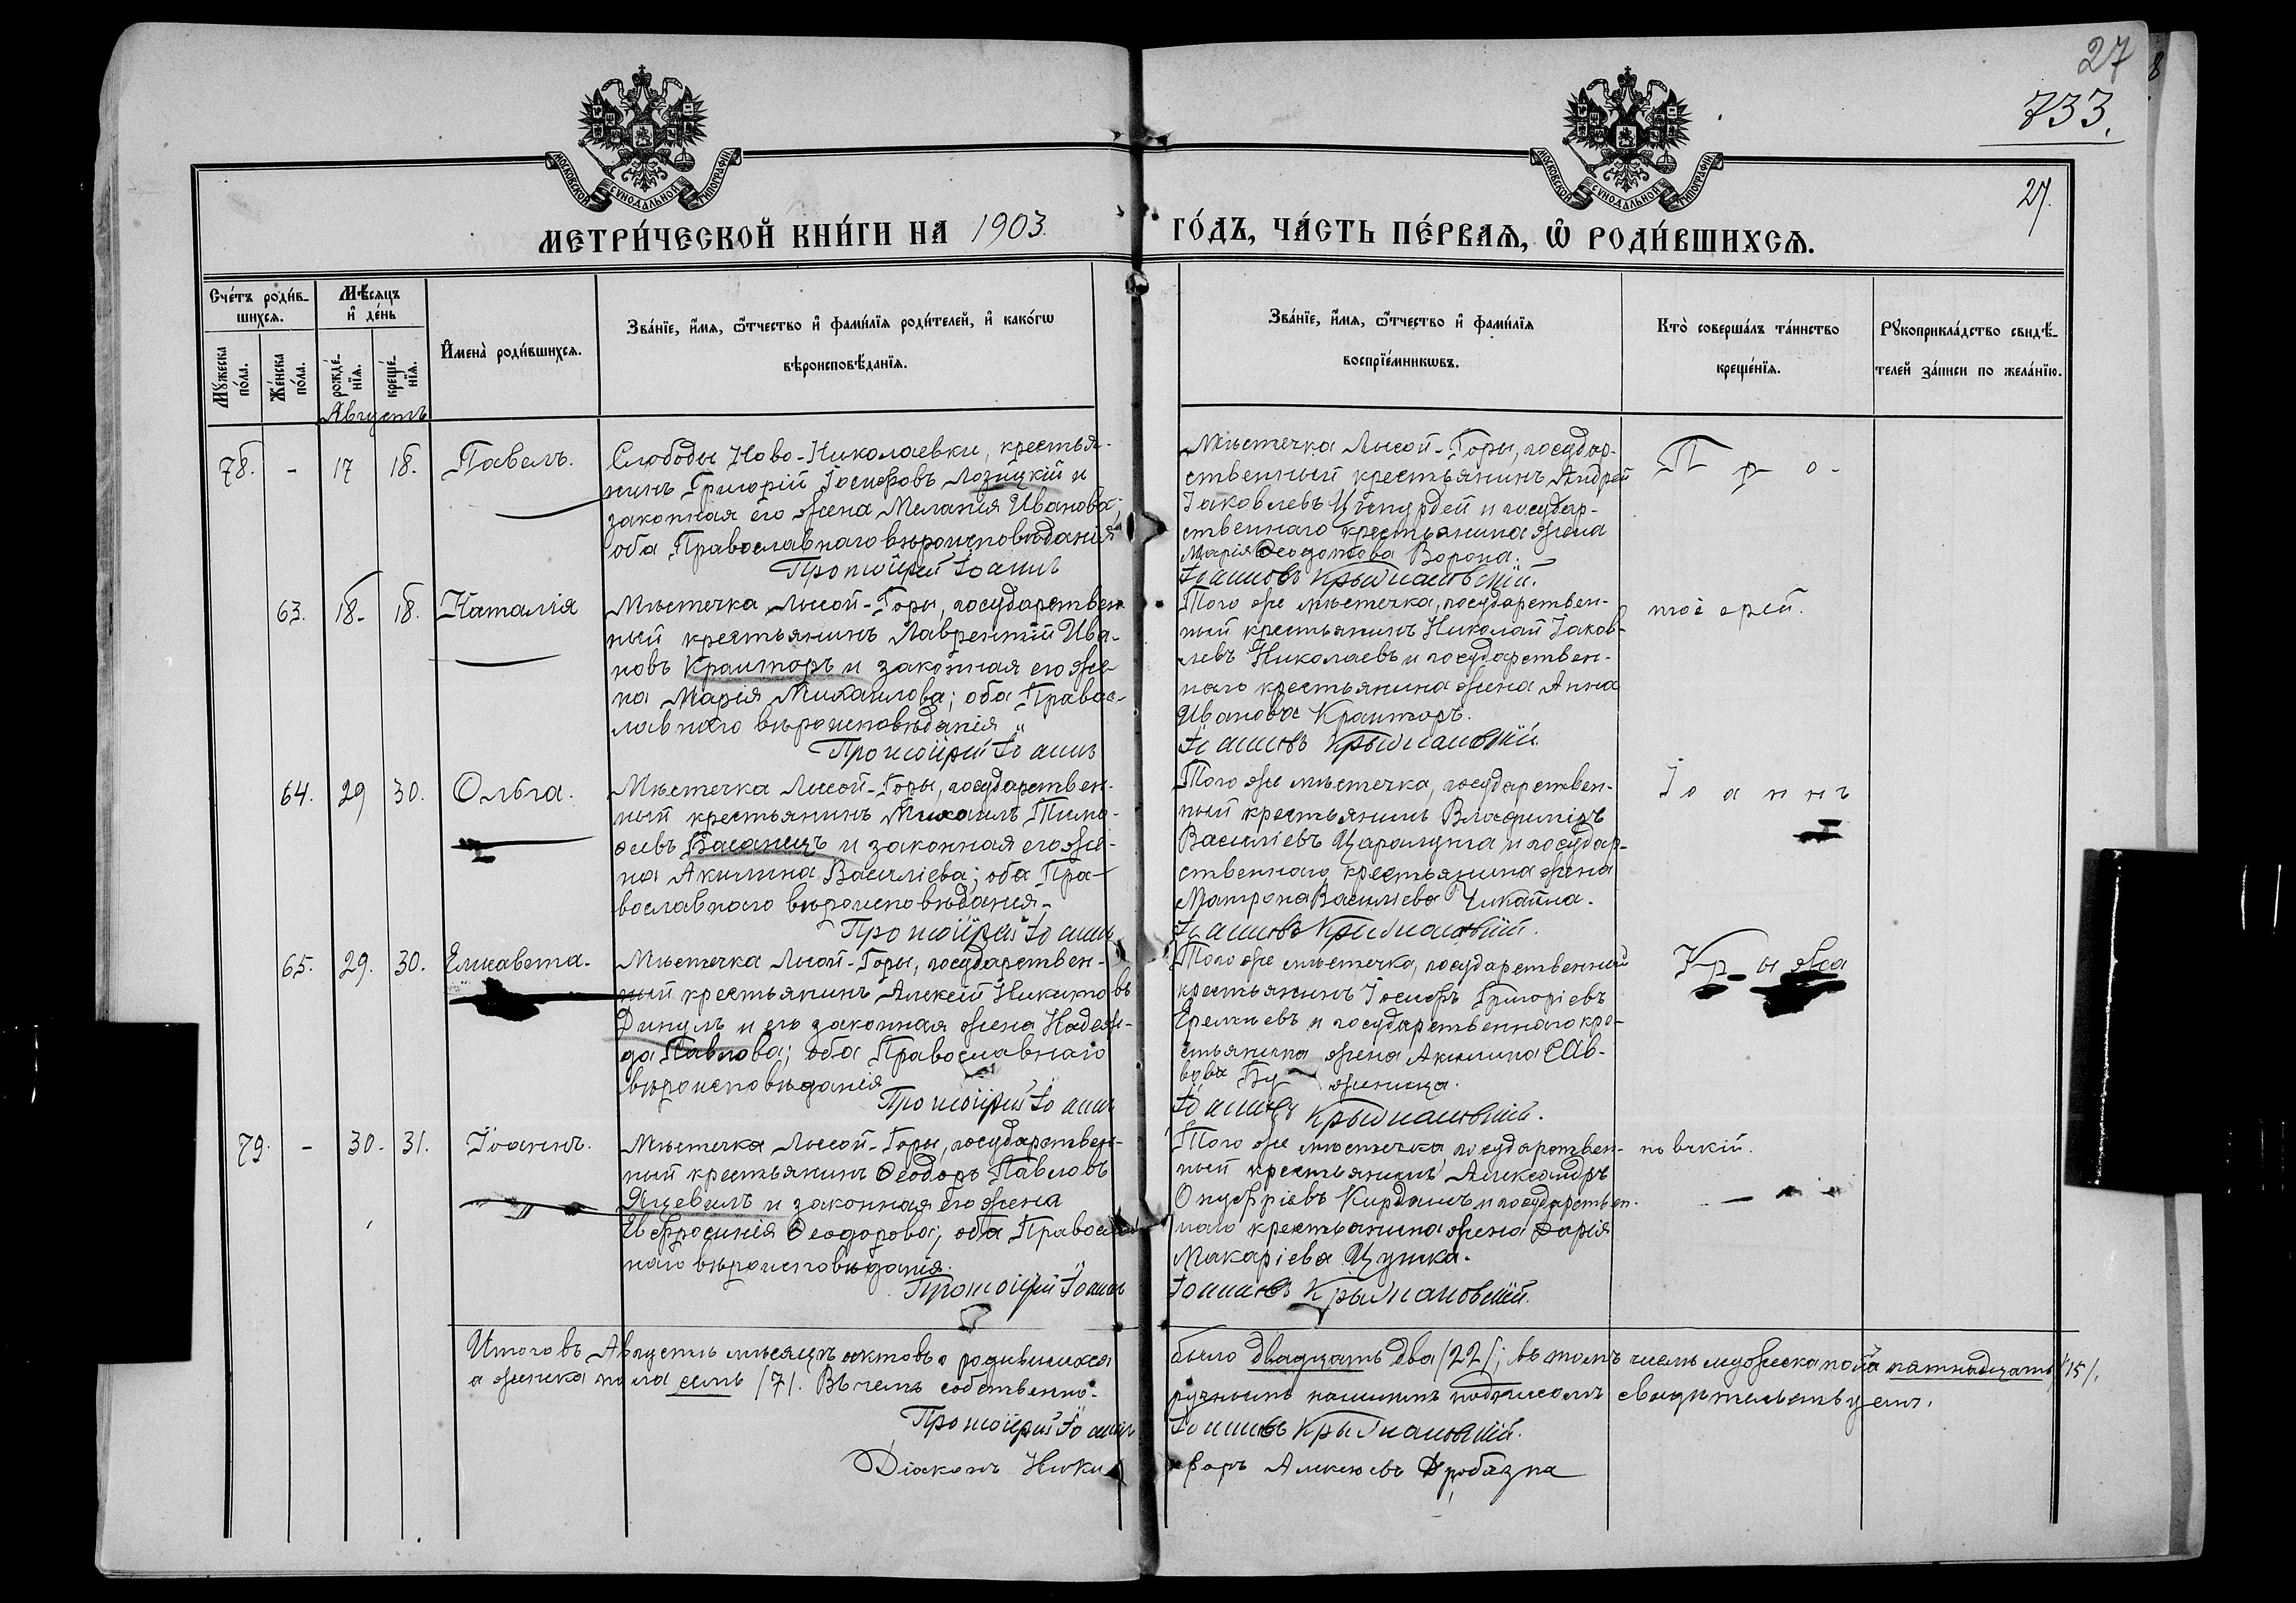 27
8
733.
27.
МОСКОВСКОЙ СѴНОДАЛЬНОЙ ТИПОГРАФІИ
МОСКОВСКОЙ СѴНОДАЛЬНОЙ ТИПОГРАФІИ
МЕТРИ́ЧЕСКОЙ КНИ́ГИ НА 1903.
ГО́ДЪ, ЧА́СТЬ ПЕ́РВАѦ, Ѡ҆ РОДИ́ВШИХСѦ.
Сче́тъ роди́в-
шихсѧ.
Мѣ́сѧцъ
и҆ де́нь
Мꙋ́жеска по́ла.
Же́нска по́ла.
рожде́-нїѧ.
креще́-нїѧ.
И҆мена̀ роди́вшихсѧ.
Зва́нїе, и҆́мѧ, ѻ҆́тчество и҆ фами́лїѧ роди́телей, и҆ како́гѡ
вѣроисповѣ́данїѧ.
Зва́нїе, и҆́мѧ, ѻ҆́тчество и҆ фами́лїѧ
воспрїе́мникѡвъ.
Кто̀ соверша́лъ та́инство
креще́нїѧ.
Рꙋкоприкла́дство свидѣ́-
телей за́писи по жела́нїю.
Августъ
78. - 17 18. Павелъ.
Слободы Ново-Николаевки, крестья-
нинъ Григорій Іосифовъ Лозицкій и
законная его жена Меланія Иванова;
оба Православнаго вѣроисповѣданія
Протоіерей Іоаннъ
Мѣстечка Лысой-Горы, государ-
ственный крестьянинъ Андрей
Іаковлевъ и государ-
ственнаго крестьянина жена
Марія Ѳеодотова Ворона.
Іоанновъ Крыжановскій.
П р о-
63. 18. 18. Наталія
Мѣстечка Лысой-Горы, государствен
ный крестьянинъ Лаврентій Ива-
новъ Крамторъ и законная его же-
на Марія Михаилова; оба Правос-
лавнаго вѣроисповѣданія
Протоіерей Іоаннъ
Того же мѣстечка, государствен-
ный крестьянинъ Николай Іаков-
левъ Николаевъ и государствен-
наго крестьянина жена Анна
Иванова Крамторъ.
Іоанновъ Крыжановскій.
тоіерей.
64. 29 30. Ольга.
Мѣстечка Лысой-Горы, государствен-
ный крестьянинъ Михаилъ Тимо-
ѳеевъ Басанецъ и законная его же-
на Акилина Василіева; оба Пра-
вославнаго вѣроисповѣданія.
Протоіерей Іоаннъ
Того же мѣстечка, государствен-
ный крестьянинъ Владиміръ
Василіевъ Царалунга и государ-
ственнаго крестьянина жена
Матрона Василіева Чикална.
Іоанновъ Крыжановскій.
І о а н н ъ
65. 29. 30. Елисавета.
Мѣстечка Лысой-Горы, государствен-
ный крестьянинъ Алексій
Дикулъ и его законная жена Надеж-
да Павлова; оба Православнаго
вѣроисповѣданія
Протоіерей Іоаннъ
Того же мѣстечка, государственный
крестьянинъ Іосифъ Григоріевъ
Еремѣевъ и государственнаго кре-
стьянина жена Акилина Сав-
вова
Іоанновъ Крыжановскій.
Кр ы жа
79. - 30. 31. Іоаннъ.
Мѣстечка Лысой-Горы, государствен-
ный крестьянинъ Ѳеодоръ Павловъ
и законная его жена
Евфросинія Ѳеодорова; оба Православ
наго вѣроисповѣданія.
Протоіерей Іоаннъ
Того же мѣстечка, государствен-
ный крестьянинъ Александръ
Онуфріевъ Кирданъ и государствен-
наго крестьянина жена Дарія
Макаріева Цушка.
Іоанновъ Крыжановскій.
новскій.
Итого въ Августѣ мѣсяцѣ актовъ о родившихся было двадцать два /22/; въ томъ числѣ мужеска пола пятнадцать /15/,
а женска пола семь /7/. Въ чемъ собственно- ручнымъ нашимъ подписомъ свидѣтельствуемъ.
Протоіерей Іоаннъ Іоанновъ Крыжановскій.
Діаконъ Никифоръ Алексіевъ Дробязка